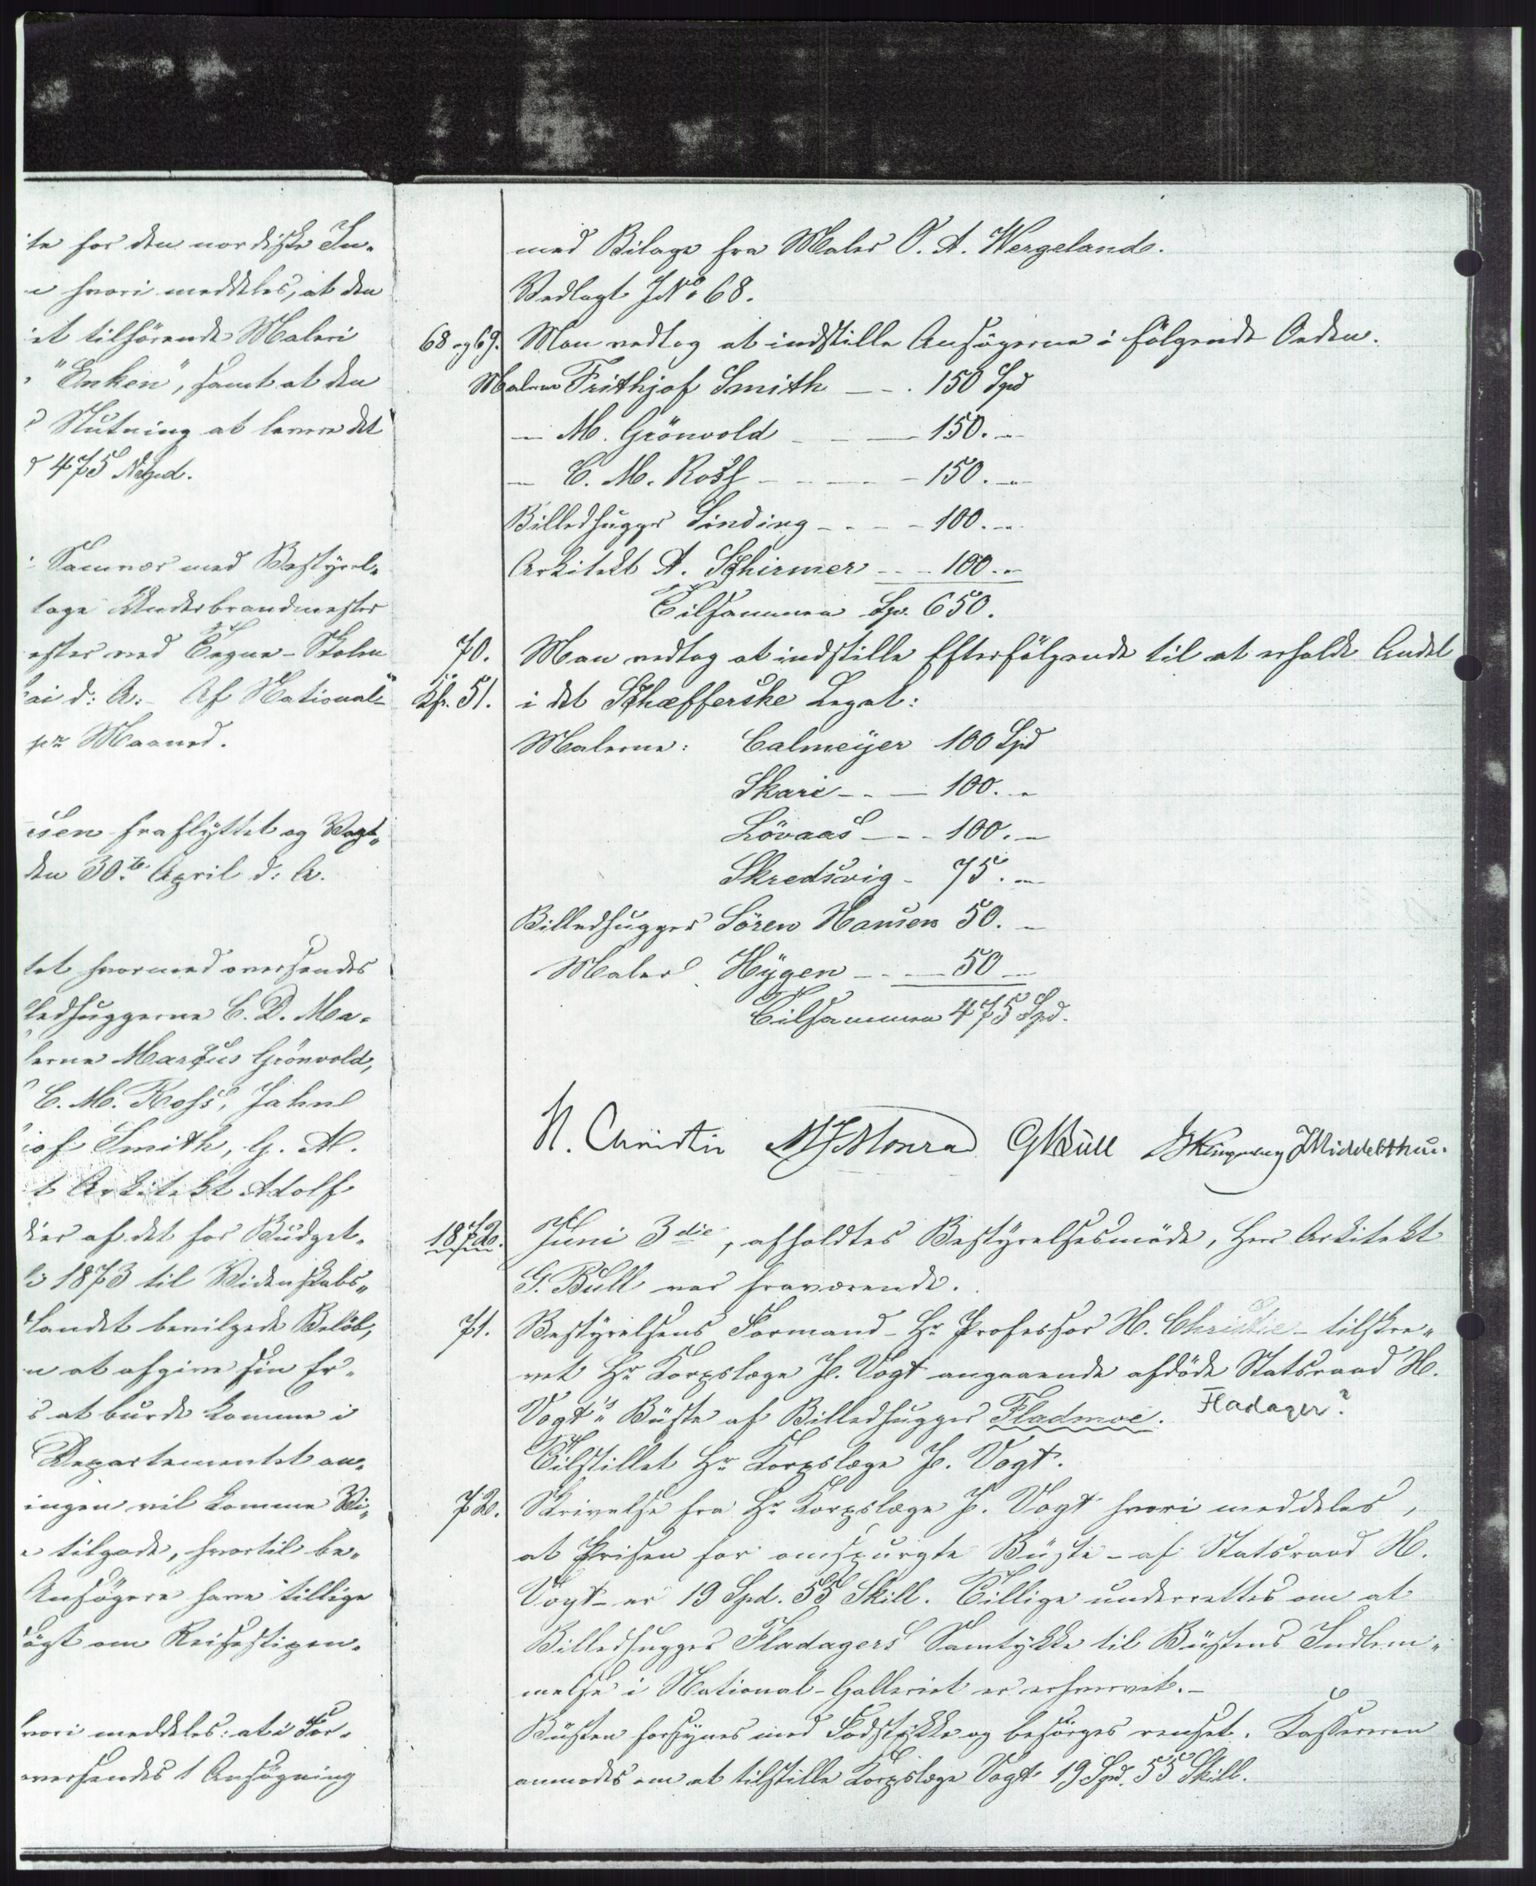 te for den nordiske In-
hvori meddeles, at den
et tilhørende Maleri
"Enken", samt at den
Slutning at levere det
475 NSpd.
i Samvær med Bestyrel-
tage Underbrandmester
ester ved Tegne-Skolen
ai d: A: Af National-
pr Maaned.
sen fraflyttet og Vogt-
den 30te April d: A.
tet hvormed oversendes
ledhuggerne C. D. Ma-
lerne Marcus Grönvold,
C. M. Ross, Jahnl
jof Smith, G. A.
t Arkitekt Adolf
er af det for Budget-
1873 til Videnskabs-
landet bevilgede Beløb,
n at afgive sin Er-
s at burde komme i
Departementet an-
ingen vil komme Vi-
tilgode, hvortil be-
Ansøgere have tillige
søgt om Reisestipen-
hvori meddeles: at i For-
oversendes 1 Ansøgning
med Bilage fra Maler O. A. Wergeland.
Vedlagt JNo 68.
68 og 69. Man vedtog at indstille Ansøgerne i følgende Orden.
Malerne Frithjof Smith - - . 150 Spd
- M. Grönvold - - - 150. -
- C. M. Ross - - - - 150. -
Billedhugger Sinding - - - 100. -
Arkitekt A. Schirmer - - - 100. -
Tilsammen Spd. 650.
70. Man vedtog at indstille Efterfølgende til at erholde Andel
Kfr. 51. i det Schæfferske Legat:
Malerne: Calmeijer 100 Spd
Skari - - - 100. -
Lövaas - - - 100. -
Skredsvig - 75. -
Billedhugger Sören Hansen 50. -
Maler Hÿgen - - - 50 -
Tilsammen 475 Spd.
H. Christie MJMonrad GBull Knudsen JMiddelthun.
1872. Juni 3die, afholdtes Bestyrelsesmöde, Herr Arkitekt
G. Bull var fraværende.
71. Bestyrelsens Formand - Hr Professor H. Christie - tilskre-
vet Hr Korpslæge J. Vogt angaaende afdöde Statsraad H.
Vogt's Büste af Billedhugger Fladmoe. Fladager?
Tilstillet Hr Korpslæge J. Vogt.
72. Skrivelse fra Hr Korpslæge J. Vogt hvori meddeles,
at Prisen for omspurgte Büste - af Statsraad H.
Vogt - er 19 Spd. 55 Skill. Tillige underrettes om at
Billedhugger Fladagers Samtykke til Büstens Indlem-
melse i National-Galleriet er erhvervet. -
Büsten forsynes med Fodstykke og besørges renset. Kassereren
anmodes om at tilstille Korpslæge Vogt 19 Spd. 55 Skill.